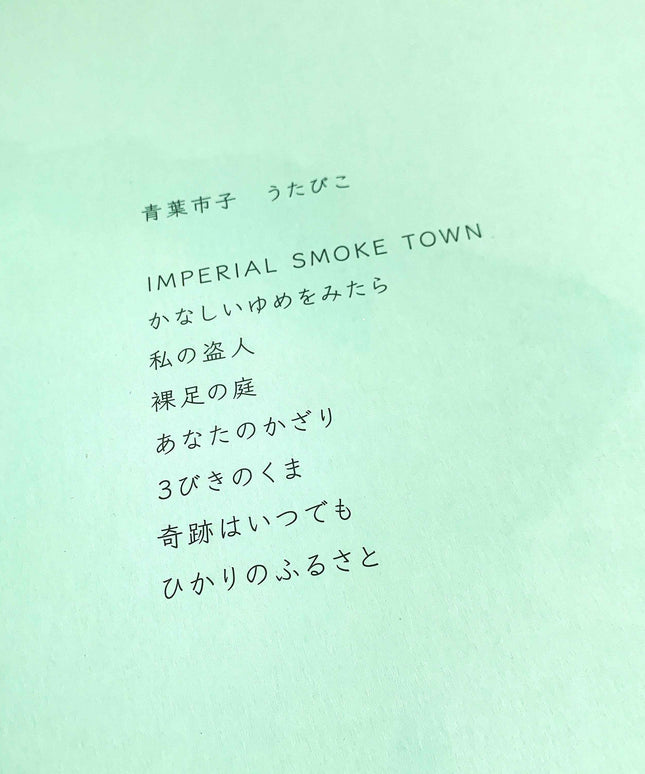 青葉市子　うたびこ
IMPERIAL SMOKE TOWN
かなしいゆめをみたら
私の盗人
裸足の庭
あなたのかざり
3びきのくま
奇跡はいつでも
ひかりのふるさと